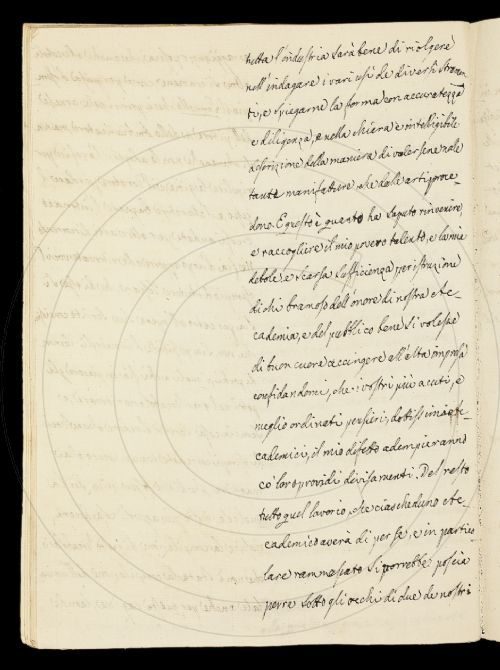 tutta l'industria sarà bene di rivolgere
nell'indagare i varj usi de diversi strumen-
ti, e spiegarne la forma con accuratezza
e diligenza, e nella chiara e intelligibile
descrizione della maniera di valersene nelle
tante manifatture che dalle arti proce-
dono. E questo è quanto ha saputo rinvenire
e raccogliere il mio povero talento, e la mia
debole, e scarsa sufficienza per istruzione
di chi bramoso dell'onore di nostra Ac-
cademia, e del pubblico bene si volesse
di buon cuore accingere all'alta impresa
confidandomi, che i vostri più acuti, e
meglio ordinati pensieri, dottissimi Ac-
cademici, il mio difetto adempieranno
co' loro providi divisamenti. Del resto
tutto quel lavorio, che ciascheduno Ac-
cademico averà di per se, e in partico-
lare rammassato si potrebbe poscia
porre sotto gli occhi di due de nostri